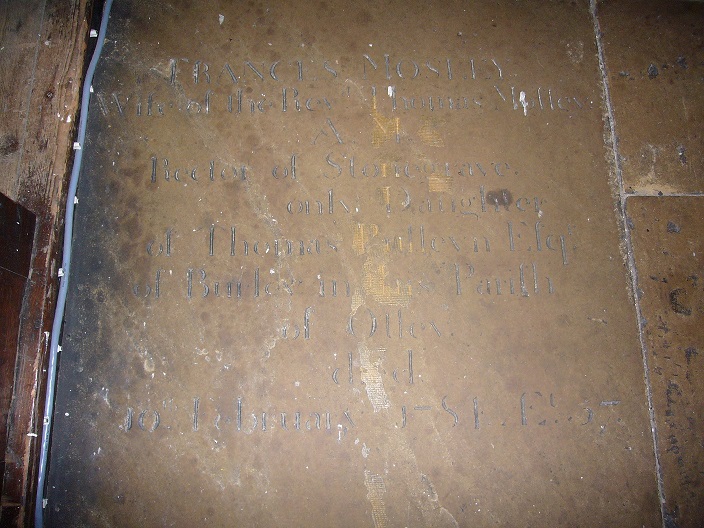 FRANCES MOSLEY
Wife of the Revd. Thomas Moſley
A. M.
Rector of Stonegrave.
only Daughter
of Thomas Pulleyn Eſqr.
of Burley in this Pariſh
of Otley.
died
February